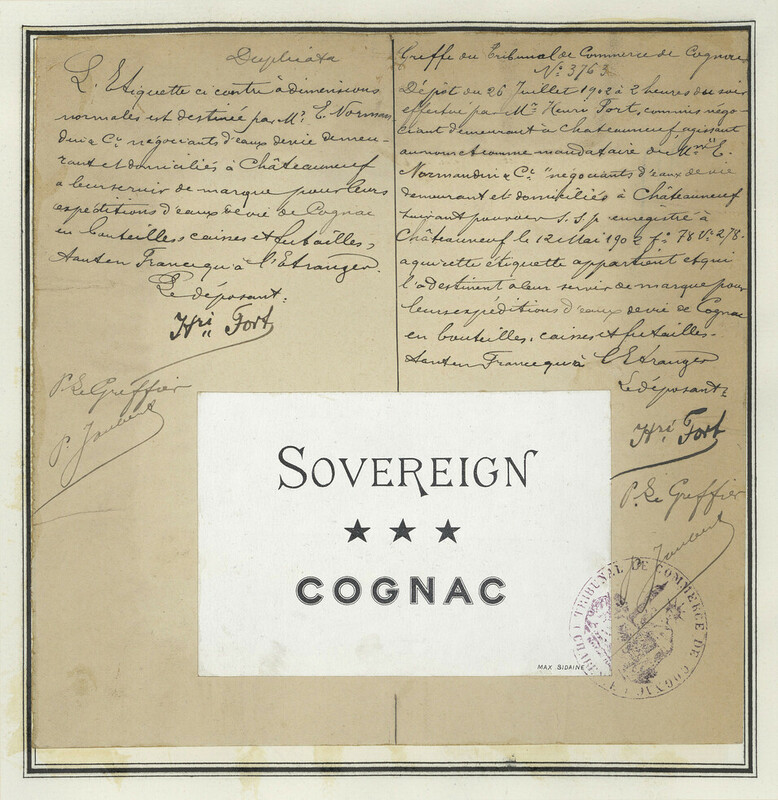 Duplicata
L'Etiquette ci contre à dimensions
normales est destinée par Mr. E. Norman
din & Cie négociants d'eaux de vie demeu-
rant et domiciliés à Châteauneuf
a leur servir de marque pour leurs
expéditions d'eaux de vie de Cognac
en bouteilles, caisses et futailles,
tant en France qu'à l'Etranger.
Le déposant:
Hri Fort
P. Le Greffier
P. Jaubert
Greffe du Tribunal de Commerce de Cognac
No 3763
Dépôt du 26 Juillet 1902 à 2 heures du soir
effectué par Mr Henri Fort, commis négo-
ciant demeurant à Chateauneuf, agissant
au nom et comme mandataire de MM. E.
Normandin & Cie négociants d'eaux de vie
demeurant et domiciliés à Châteauneuf
suivant pouvoir s.s.p. enregistré à
Châteauneuf le 12 Mai 1902 fo 78 Vo 278.
a qui cette étiquette appartient et qui
l'a destinent à leur servir de marque pour
leurs expéditions d'eaux de vie de Cognac
en bouteilles, caisses et futailles-
tant en France qu'à l'Etranger
Le déposant:
Hri Fort
P. Le Greffier
Jaubert
SOVEREIGN
★ ★ ★
COGNAC
MAX SIDAINE
TRIBUNAL DE COMMERCE DE COGNAC